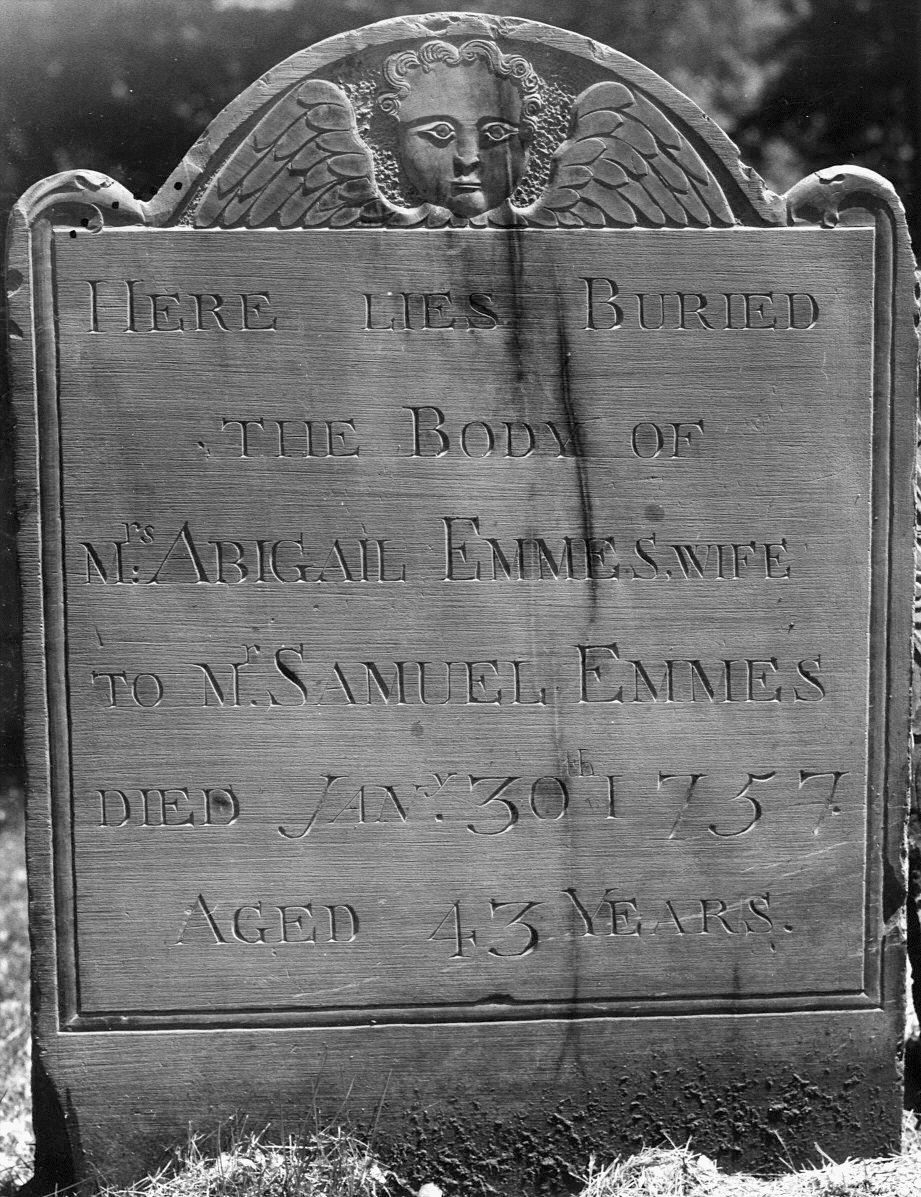 HERE LIES BURIED
THE BODY OF
Mrs: ABIGAIL EMMES.WIFE
TO Mr. SAMUEL EMMES
DIED JANy. 30th 1757.
AGED 43 YEARS.